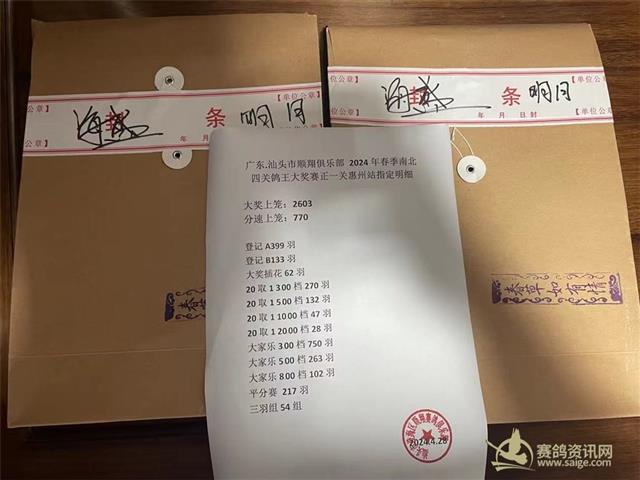 【单位公章】
封 条
【单位公章】
年 月 日
明月
【单位公章】
封 条
【单位公章】
年 月 日 封
明月
广东.汕头市顺翔俱乐部 2024年春季南北
四关鸽王大奖赛正一关惠州站指定明细
大奖上笼：2603
分速上笼：770
登记 A399 羽
登记 B133 羽
大奖插花 62 羽
20 取 1 300 档 270 羽
20 取 1 500 档 132 羽
20 取 1 1000 档 47 羽
20 取 1 2000 档 28 羽
大家乐 300 档 750 羽
大家乐 500 档 263 羽
大家乐 800 档 102 羽
平分赛 217 羽
三羽组 54 组
2024.4.28
春草如有情
赛鸽资讯网
www.saige.com